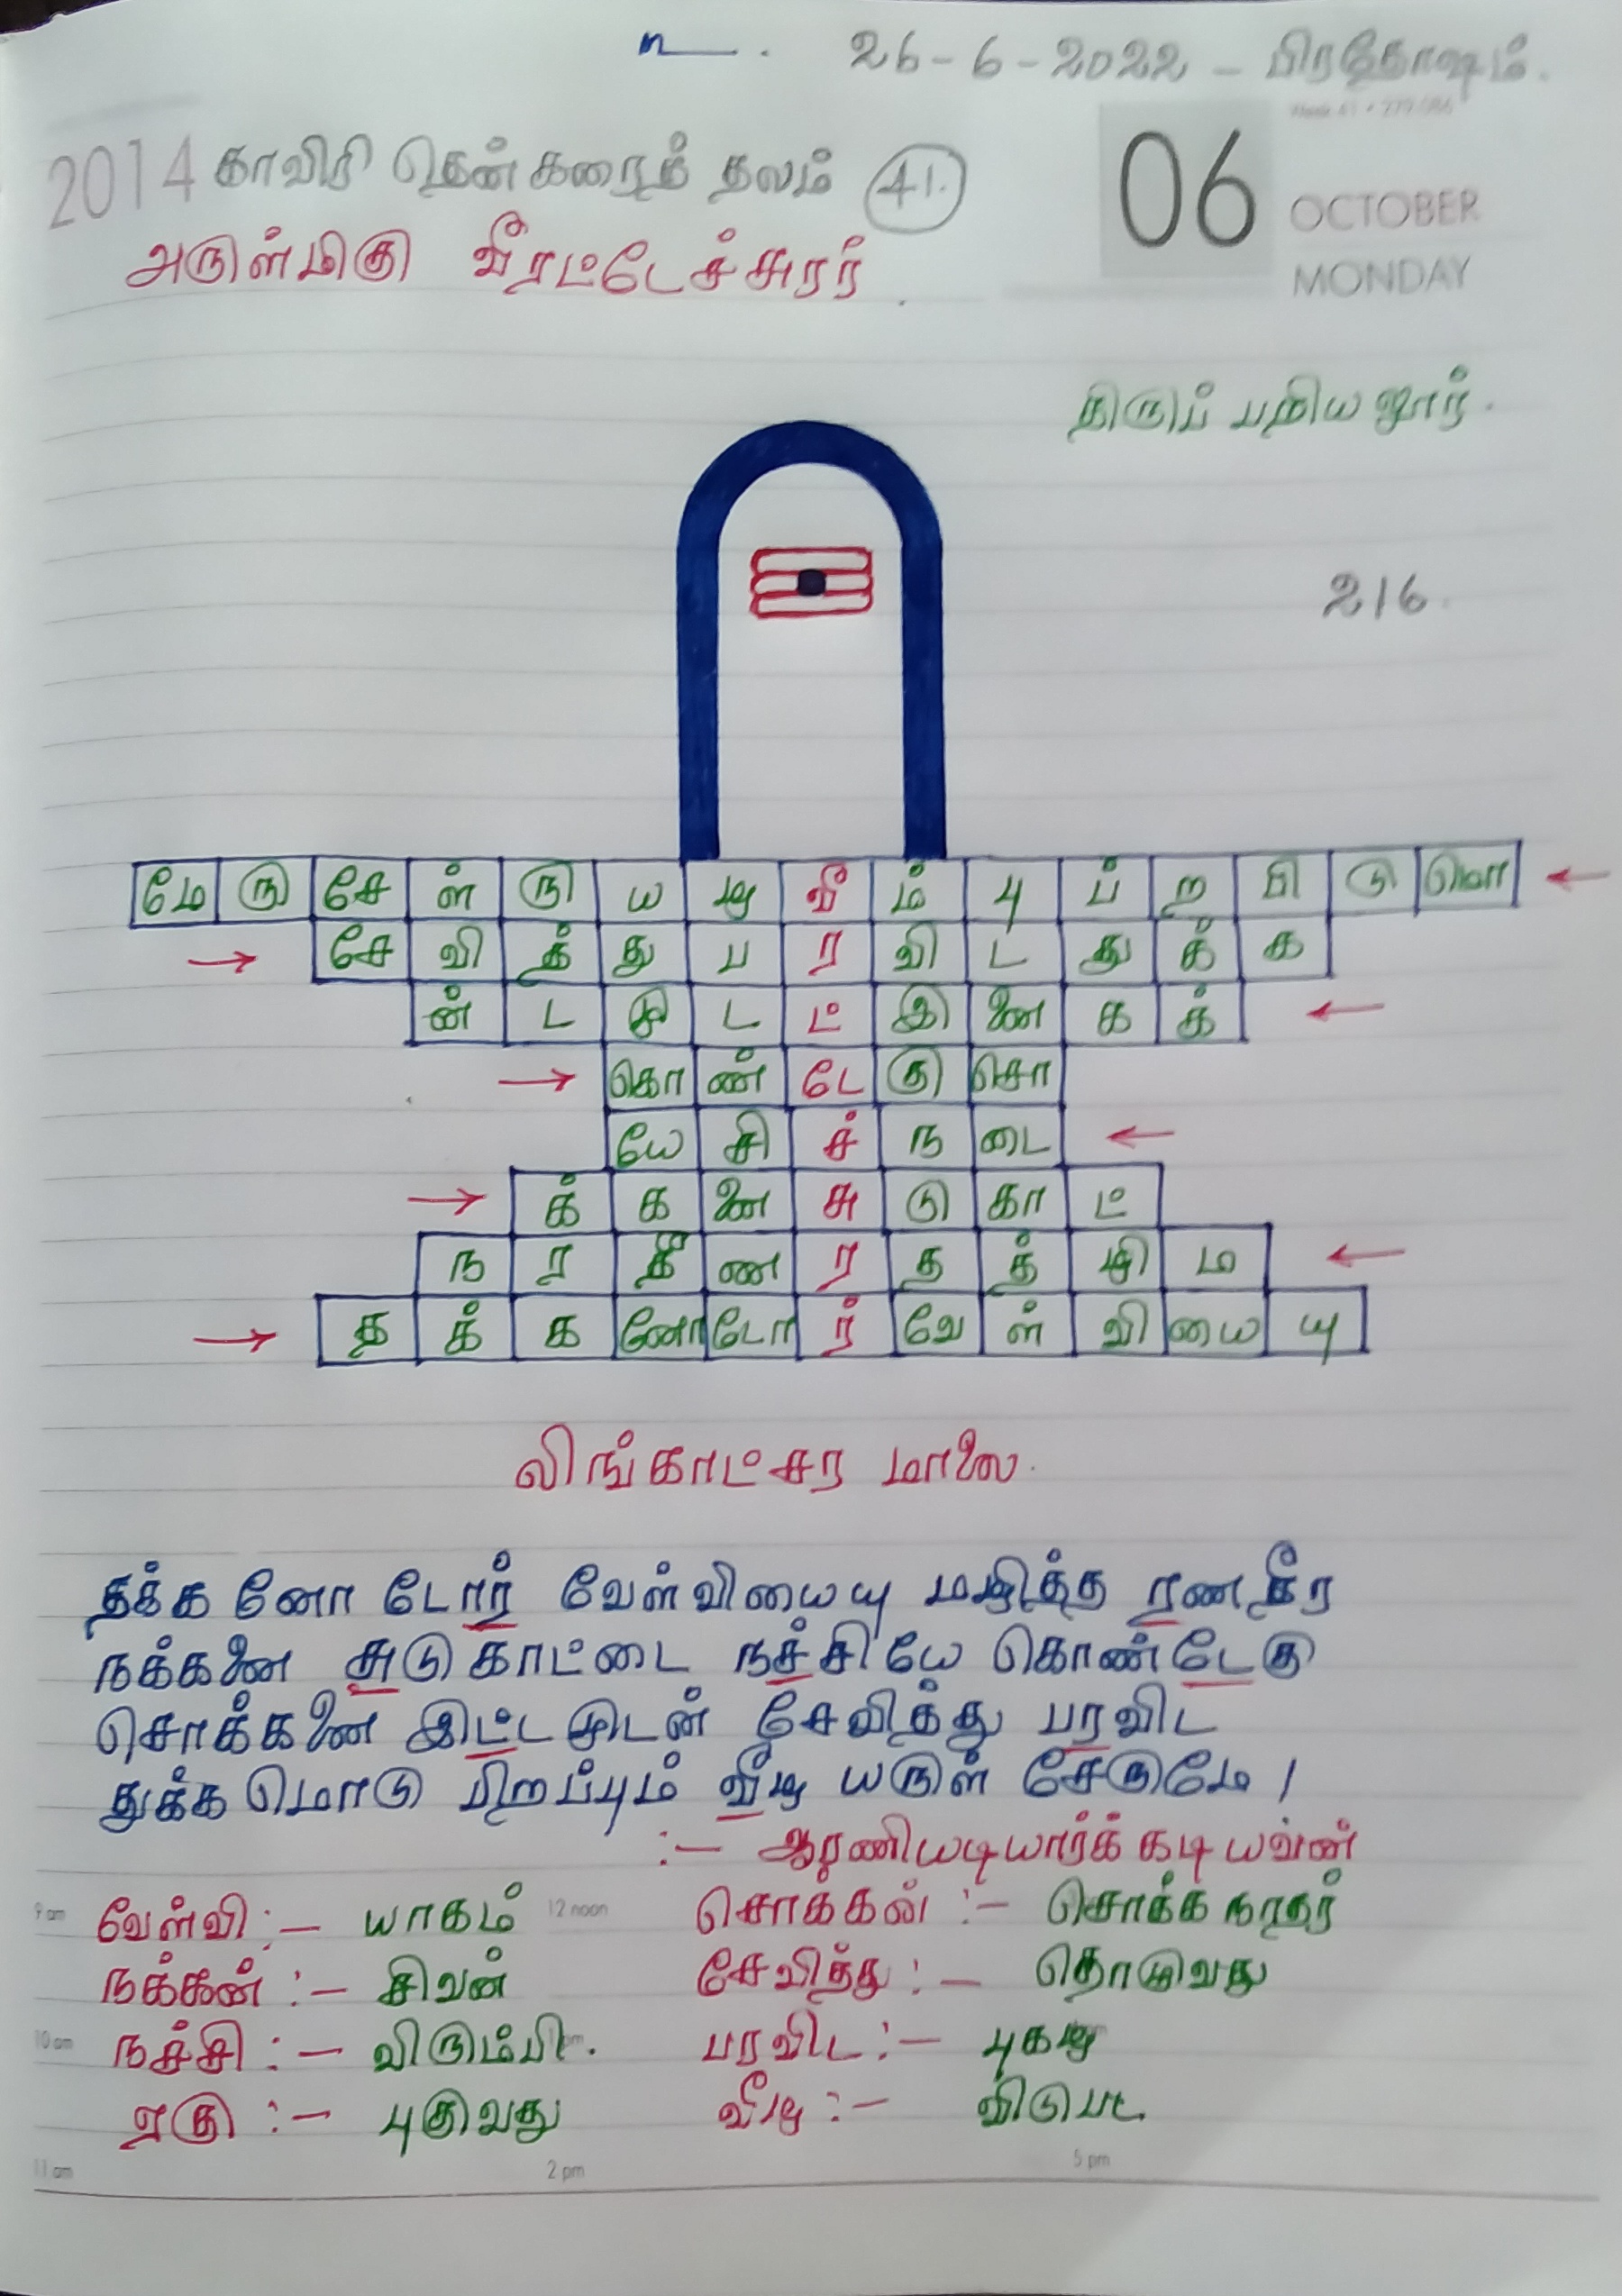 உ. 26-6-2022 - பிரதோஷம்.
2014 காவிரி தென்கரைத் தலம் 41.
06
OCTOBER
MONDAY
அருள்மிகு வீரட்டேச்சுரர்
திருப் பறியலூர்.
216.
மே ரு சே ள் ரு ய ழ வீ ம் பு ப் ற பி டு மொ ←
→ சே வி த் து ப ர வி ட து க் க
ன் ட மு ட ட் இ னை க க் ←
→ கொ ண் டே கு சொ
யே சி ச் ந டை ←
→ க் க னை சு டு கா ட்
ந ர தீ ண ர த த் ழி ம ←
→ த க் க னோ டோ ர் வே ள் வி யை யு
லிங்காட்சர மாலை.
தக்க னோ டோர் வேள்வியையு மழித்த ரணதீர
நக்கனை சுடு காட்டை நச்சியே கொண்டேகு
சொக்கனை இட்டமுடன் சேவித்து பரவிட
துக்க மொடு பிறப்பும் வீழ யருள் சேருமே /
:- ஆரணியடியார்க் கடியவன்
9 am வேள்வி :- யாகம் 12 noon சொக்கன் :- சொக்க நாதர்
நக்கன் :- சிவன் சேவித்து :- தொழுவது
10 am நச்சி :- விரும்பி. பரவிட :- புகழ
ஏகு :- புகுவது வீழ :- விடுபட
11 am 2 pm 5 pm